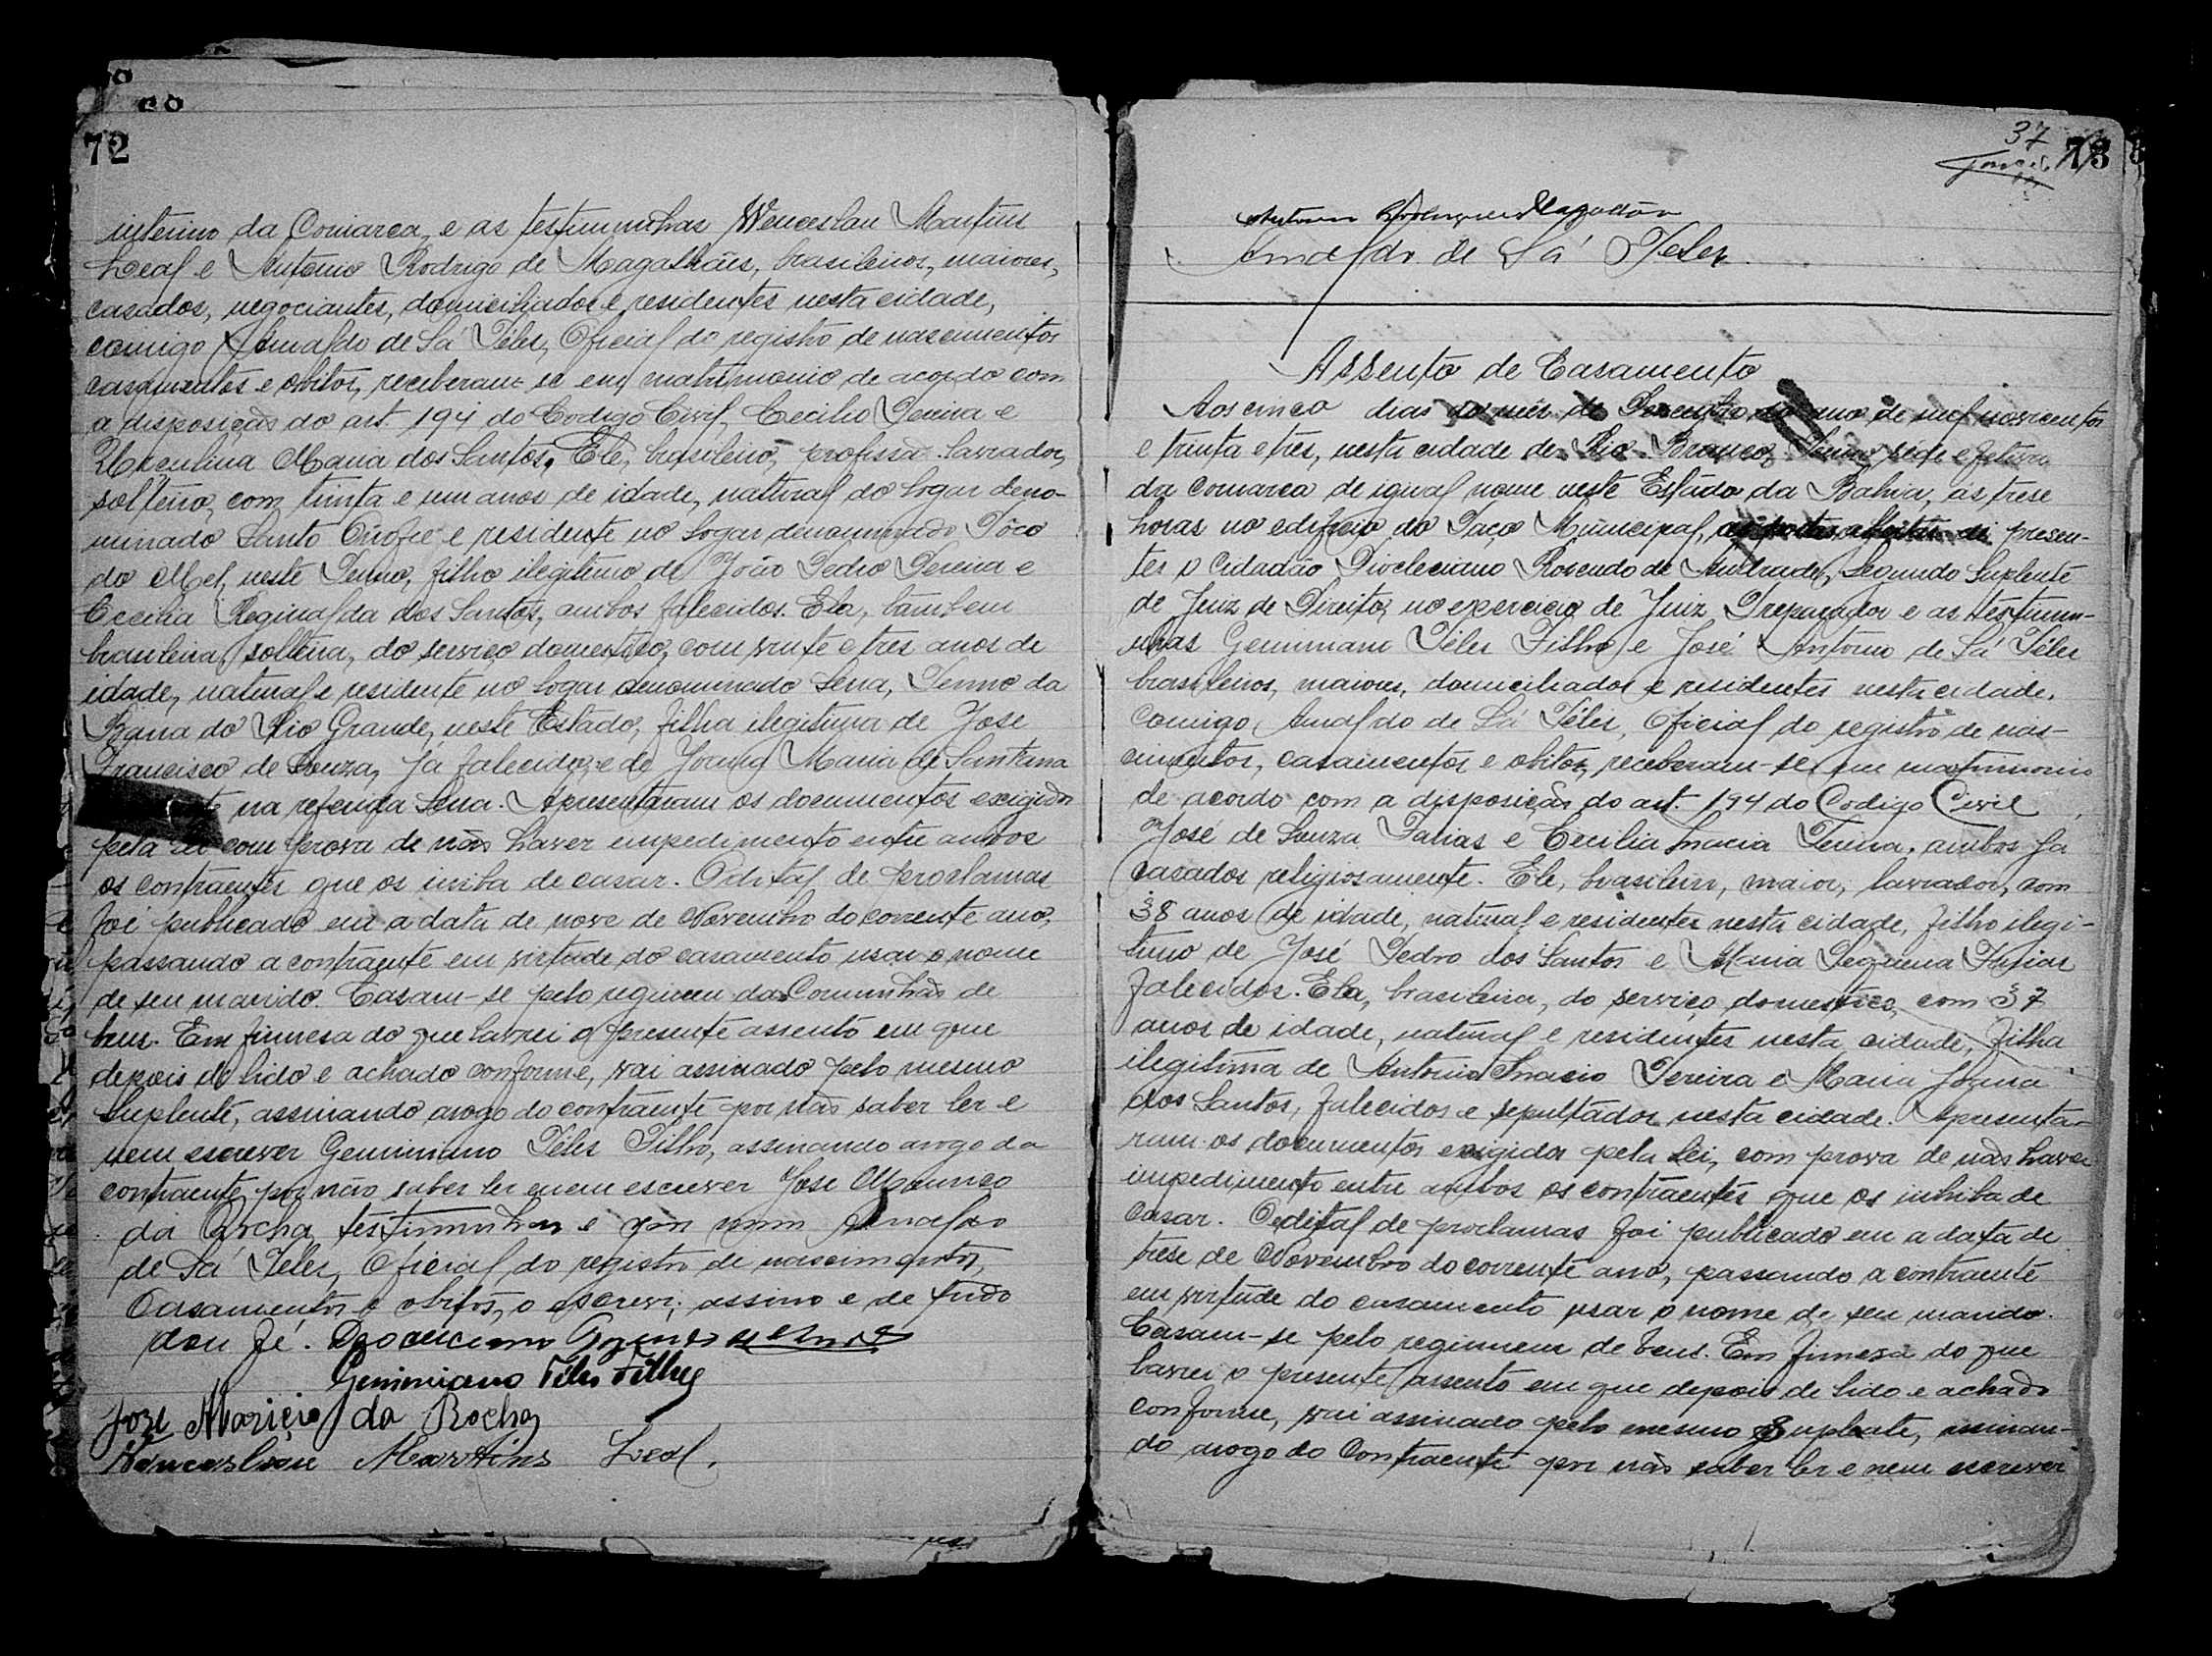 72
interino da Comarca, e as testimunhas Wenceslau Martins
Leal e Antonio Rodrigo de Magalhães, brasileiros, maiores,
casados, negociantes, domiciliados e residentes nesta cidade,
comigo Arnaldo de Sá Téles, Oficial do registro de nascimentos
casamentos e obitos, receberam-se em matrimonio de acordo com
a disposição do art. 194 do Codigo Civil, Cecilio Pereira e
Maria dos Santos. Ele, brasileiro, profissão lavrador,
solteiro, com trinta e um anos de idade, natural do logar deno-
minado Santo Onofre e residente no logar denominado Pôco
do Mel, neste Termo, filho ilegitimo de João Pedro Pereira e
Cecilia Reginalda dos Santos, ambos falecidos. Ela, tambem
brasileira, solteira, do serviço domestico, com vinte e tres anos de
idade, natural e residente no logar denominado Serra, Termo da
Barra do Rio Grande, neste Estado, filha ilegitima de José
Francisco de Souza, já falecido, e de Joana Maria de Santana
na referida Serra. Apresentaram os documentos exigidos
pela lei com prova de não haver impedimento entre ambos
os contraentes que os iniba de casar. O edital de proclamas
foi publicado em a data de nove de Novembro do corrente ano,
passando a contraente em virtude do casamento usar o nome
de seu marido. Casam-se pelo regimen da Comunhão de
bens. Em firmesa do que lavrei o presente assento em que
depois de lido e achado conforme, vai assinado pelo mesmo
Suplente, assinando arogo do contraente por não saber ler e
nem escrever Geminiano Téles Filho, assinando arogo da
contraente por não saber ler e nem escrever José Mauricio
da Rocha, testimunhas e por mim Arnaldo
de Sá Teles, Oficial do registro de nascimentos,
Casamentos e obitos, o escrevi, assino e de tudo
dou fé.
Geminiano Téles Filho
José Mariçio da Rocha
Wenceslau Martins Leal.
37
73
Antonio Rodrigues Magalhães
Arnaldo de Sá Teles
Assento de Casamento
Aos cinco dias do mês de Dezembro do ano de mil novecentos
e trinta e três, nesta cidade de Rio Branco, Termo séde
da comarca de igual nome neste Estado da Bahia, ás trese
horas no edificio do Paço Municipal, presen-
tes o Cidadão Diocleciano Rosendo de Andrade, Segundo Suplente
de Juiz de Direito, no exercicio de Juiz Preparador e as testimu-
nhas Geminiano Téles Filho e José Antonio de Sá Téles
brasileiros, maiores, domiciliados e residentes nesta cidade,
Comigo Arnaldo de Sá Téles, Oficial do registro de nas-
cimentos, casamentos e obitos, receberam-se em matrimonio
de acordo com a disposição do art. 194 do Codigo Civil,
José de Souza Farias e Cecilia Inacia Pereira, ambos já
casados religiosamente. Ele, brasileiro, maior, lavrador, com
38 anos de idade, natural e residente nesta cidade, filho ilegi-
timo de José Pedro dos Santos e Maria Farias
falecidos. Ela, brasileira, do serviço domestico, com 37
anos de idade, natural e residentes nesta cidade, filha
ilegitima de Antonio Inacio Pereira e Maria Joana
dos Santos, falecidos e sepultados nesta cidade. Apresenta-
ram os documentos exigidos pela Lei, com prova de não haver
impedimento entre ambos os contraentes que os inhiba de
Casar. O edital de proclamas foi publicado em a data de
trese de Novembro do corrente ano, passando a contraente
em virtude do casamento usar o nome de seu marido.
Casam-se pelo regimem de bens. Em firmeza do que
lavrei o presente assento em que depois de lido e achado
conforme, vai assinado pelo mesmo Suplente, assinan-
do arogo do Contraente por não saber ler e nem escrever